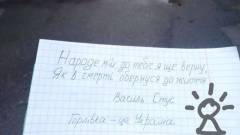 Народе мій до тебе я ще верну,
Як в смерті обернуся до життя
Василь Стус
Горлівка – це Україна